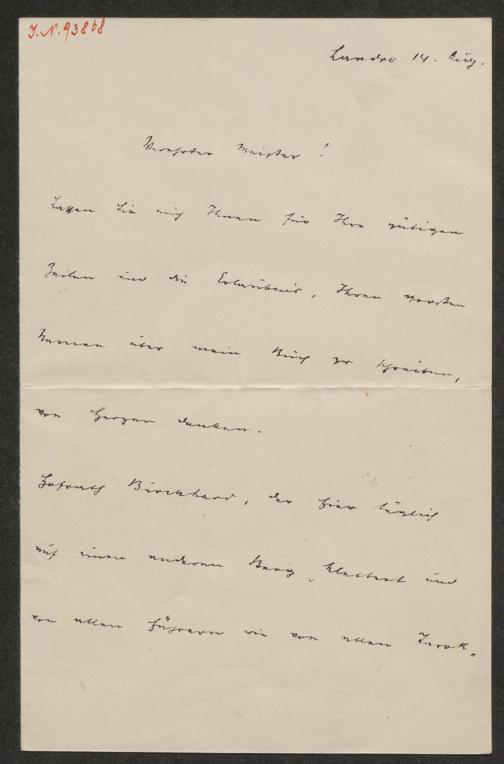 I.N. 93868
Landro 14. Aug.
Verehrter Meister!
Lassen Sie mich Ihnen für Ihre gütigen
Zeilen und die Erlaubnis, Ihren werten
Namen über mein Buch zu schreiben,
von Herzen danken.
Hofrath Burckhard, der hier täglich
auf einen anderen Berg klettert und
von allen Führern wie von allen Tarok-